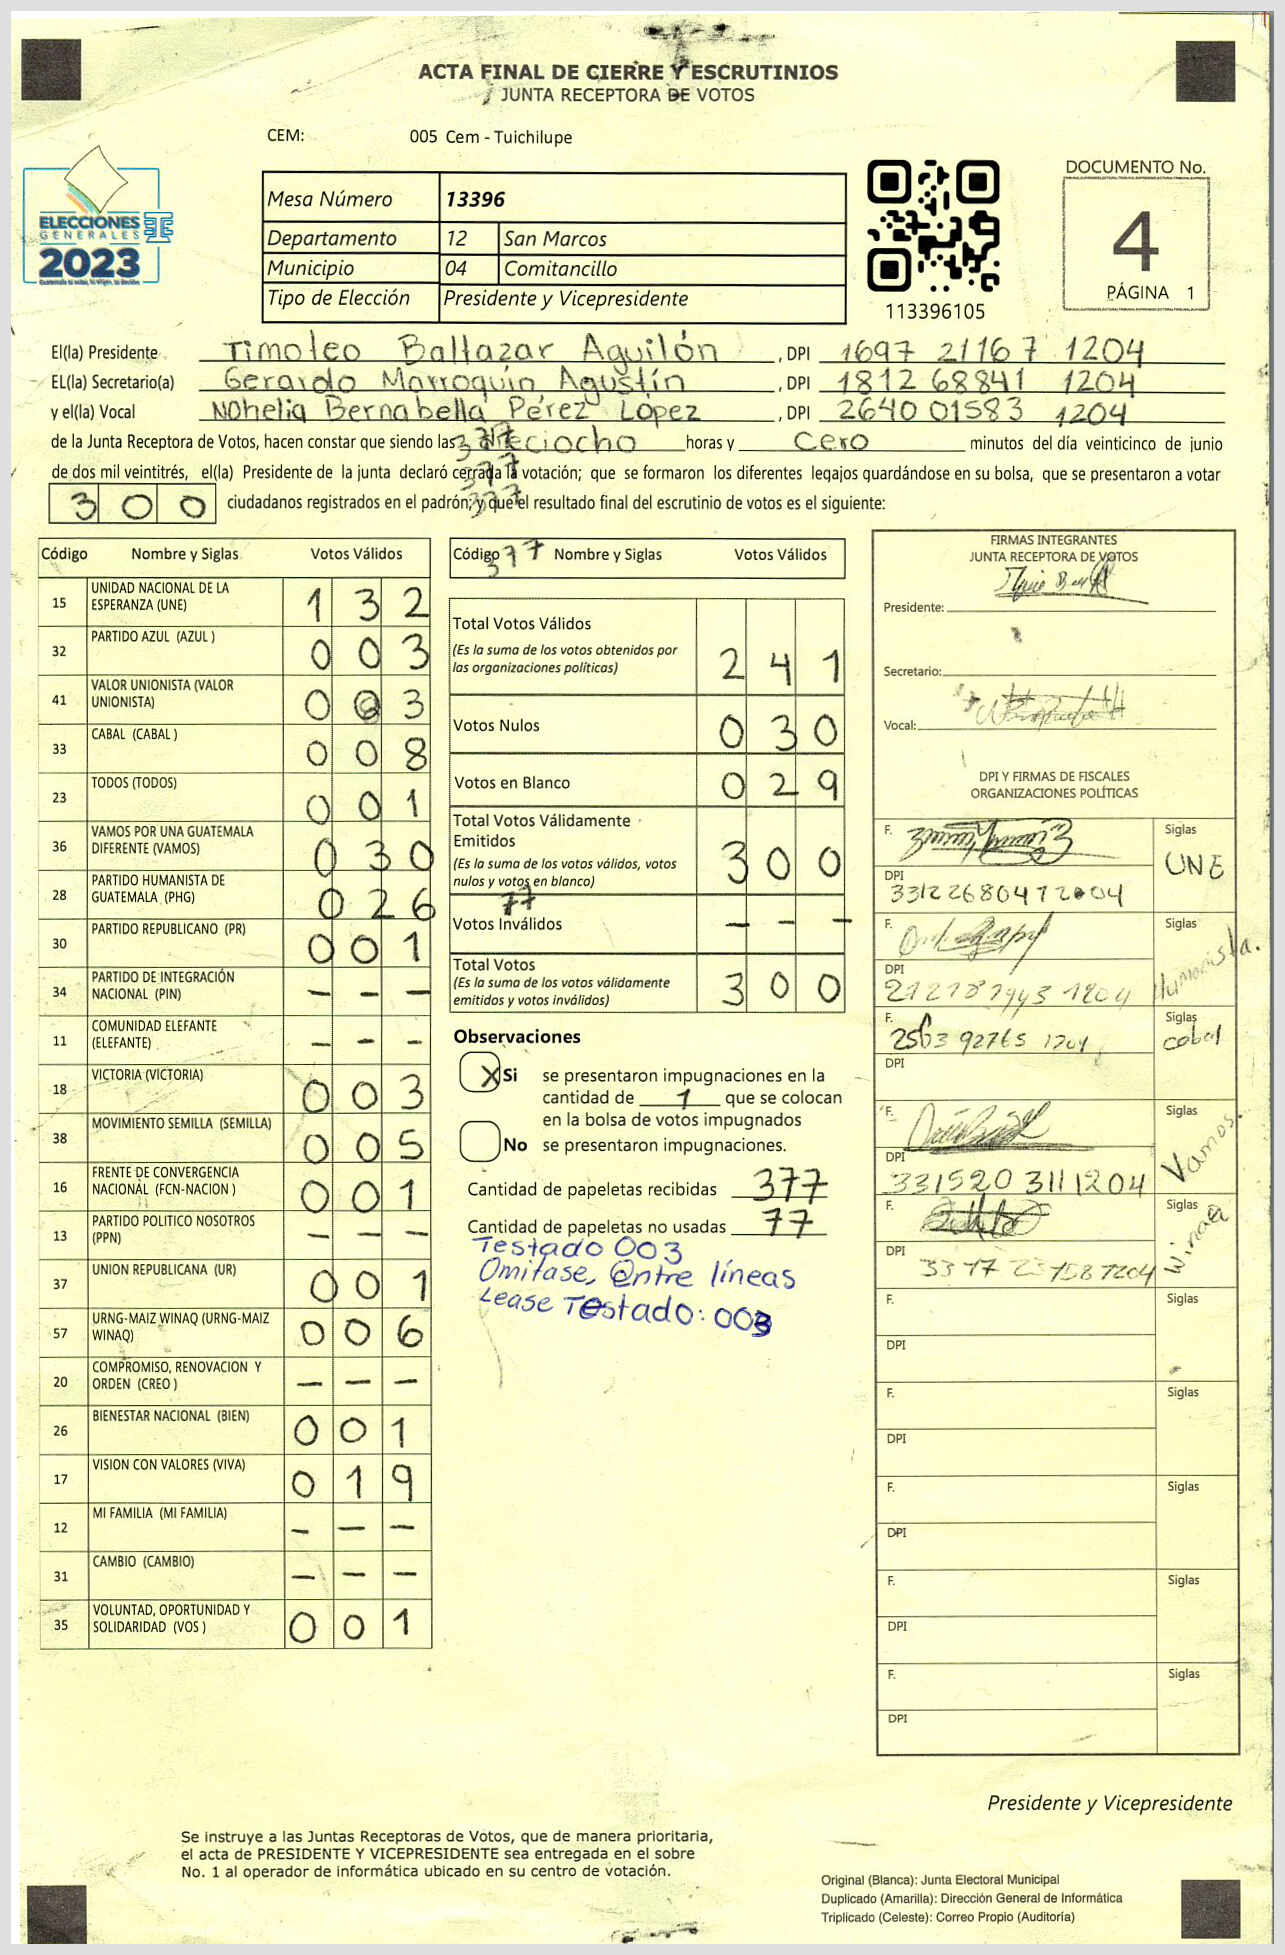 ACTA FINAL DE CIERRE Y ESCRUTINIOS
JUNTA RECEPTORA DE VOTOS
CEM: 005 Cem - Tuichilupe
ELECCIONES
GENERALES
2023
TSE
Mesa Número 13396
Departamento 12 San Marcos
Municipio 04 Comitancillo
Tipo de Elección Presidente y Vicepresidente
113396105
DOCUMENTO No.
4
PÁGINA 1
El(la) Presidente Timoleo Baltazar Aguilón , DPI 1697 21167 1204
EL(la) Secretario(a) Gerardo Marroquín Agustín , DPI 1812 68841 1204
y el(la) Vocal Nohelia Bernabella Pérez López , DPI 2640 01583 1204
de la Junta Receptora de Votos, hacen constar que siendo las dieciocho horas y cero minutos del día veinticinco de junio
de dos mil veintitrés, el(la) Presidente de la junta declaró cerrada la votación; que se formaron los diferentes legajos guardándose en su bolsa, que se presentaron a votar
300 ciudadanos registrados en el padrón; y que el resultado final del escrutinio de votos es el siguiente:
377
377
377
377
Código Nombre y Siglas Votos Válidos
15 UNIDAD NACIONAL DE LA ESPERANZA (UNE) 1 3 2
32 PARTIDO AZUL (AZUL ) 0 0 3
41 VALOR UNIONISTA (VALOR UNIONISTA) 0 0 3
33 CABAL (CABAL ) 0 0 8
23 TODOS (TODOS) 0 0 1
36 VAMOS POR UNA GUATEMALA DIFERENTE (VAMOS) 0 3 0
28 PARTIDO HUMANISTA DE GUATEMALA (PHG) 0 2 6
30 PARTIDO REPUBLICANO (PR) 0 0 1
34 PARTIDO DE INTEGRACIÓN NACIONAL (PIN) - - -
11 COMUNIDAD ELEFANTE (ELEFANTE) - - -
18 VICTORIA (VICTORIA) 0 0 3
38 MOVIMIENTO SEMILLA (SEMILLA) 0 0 5
16 FRENTE DE CONVERGENCIA NACIONAL (FCN-NACION ) 0 0 1
13 PARTIDO POLITICO NOSOTROS (PPN) - - -
37 UNION REPUBLICANA (UR) 0 0 1
57 URNG-MAIZ WINAQ (URNG-MAIZ WINAQ) 0 0 6
20 COMPROMISO, RENOVACION Y ORDEN (CREO ) - - -
26 BIENESTAR NACIONAL (BIEN) 0 0 1
17 VISION CON VALORES (VIVA) 0 1 9
12 MI FAMILIA (MI FAMILIA) - - -
31 CAMBIO (CAMBIO) - - -
35 VOLUNTAD, OPORTUNIDAD Y SOLIDARIDAD (VOS ) 0 0 1
Código Nombre y Siglas Votos Válidos
Total Votos Válidos 2 4 1
(Es la suma de los votos obtenidos por
las organizaciones políticas)
Votos Nulos 0 3 0
Votos en Blanco 0 2 9
Total Votos Válidamente
Emitidos 3 0 0
(Es la suma de los votos válidos, votos
nulos y votos en blanco)
77
Votos Inválidos - - -
Total Votos 3 0 0
(Es la suma de los votos válidamente
emitidos y votos inválidos)
Observaciones
X Si se presentaron impugnaciones en la
cantidad de 1 que se colocan
en la bolsa de votos impugnados
No se presentaron impugnaciones.
Cantidad de papeletas recibidas 377
Cantidad de papeletas no usadas 77
Testado 003
Omitase, Entre líneas
Lease Testado: 003
FIRMAS INTEGRANTES
JUNTA RECEPTORA DE VOTOS
Presidente:
Secretario:
Vocal:
DPI Y FIRMAS DE FISCALES
ORGANIZACIONES POLÍTICAS
F. Siglas
UNE
DPI
3312268047 1204
F. Siglas
Humanista.
DPI
F. Siglas
2563 92765 1204 cabal
DPI
F. Siglas
Vamos
DPI
331520 311 1204
F. Siglas
Winaq
DPI
F. Siglas
DPI
F. Siglas
DPI
F. Siglas
DPI
F. Siglas
DPI
F. Siglas
DPI
Presidente y Vicepresidente
Se instruye a las Juntas Receptoras de Votos, que de manera prioritaria,
el acta de PRESIDENTE Y VICEPRESIDENTE sea entregada en el sobre
No. 1 al operador de informática ubicado en su centro de votación.
Original (Blanca): Junta Electoral Municipal
Duplicado (Amarilla): Dirección General de Informática
Triplicado (Celeste): Correo Propio (Auditoría)